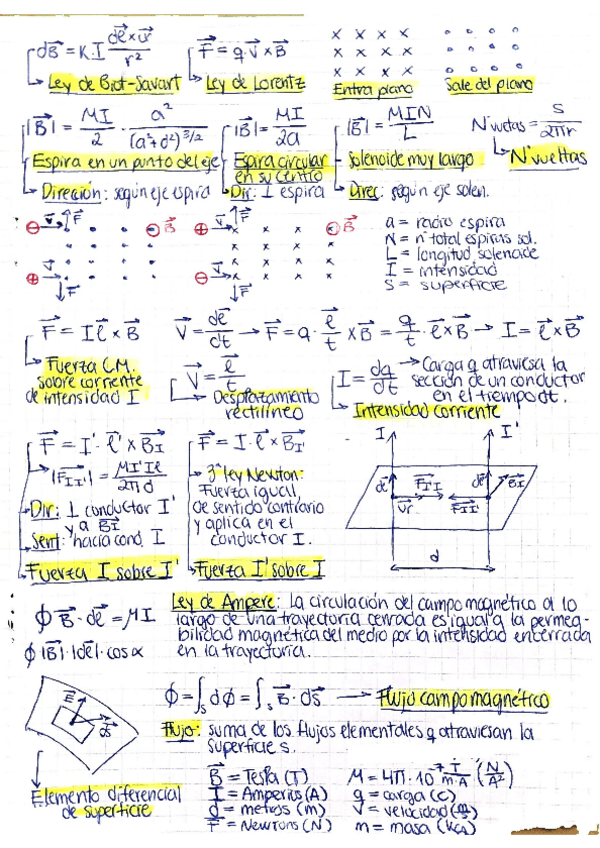 dB⃗ = K I (dl⃗ × u⃗r)/r²
F⃗ = q · v⃗ × B⃗
x x x x
x x x x
x x x x
Ley de Biot-Savart
Ley de Lorentz
Entra plano
Sale del plano
|B⃗| = MI/2 · a²/(a²+d²)^3/2
|B⃗| = MI/2a
|B⃗| = MIN/L
Nºvueltas = S/2πr
Espira en un punto del eje
Espira circular en su centro
Solenoide muy largo
Nºvueltas
Dirección: según eje espira
Dir: I espira
Direc: según eje solen.
a = radio espira
N = nº total espiras sol.
L = longitud solenoide
I = intensidad
S = superficie
F⃗ = I l⃗ × B⃗
V⃗ = dl⃗/dt → F⃗ = q · l⃗/t × B⃗ = q/t · l⃗ × B⃗ → I = l⃗ × B⃗
Fuerza C.M.
sobre corriente
de intensidad I
V⃗ = l⃗/t
Desplazamiento
rectilíneo
I = dq/dt → Carga q atraviesa la
sección de un conductor
en el tiempo dt.
Intensidad corriente
F⃗ = I' · l⃗' × B⃗I
|F⃗II'| = MI'Il/2πd
Dir: ⊥ conductor I'
y a B⃗I
Sent: hacia cond. I
Fuerza I sobre I'
F⃗ = I · l⃗ × B⃗I'
3ª ley Newton:
Fuerza igual,
de sentido contrario
y aplica en el
conductor I.
Fuerza I' sobre I
I I'
dl⃗ F⃗I'I F⃗II' dl⃗' B⃗I
u⃗r
d
∮ B⃗ · dl⃗ = MI
∮ |B⃗| · |dl⃗| · cos α
Ley de Ampere: La circulación del campo magnético a lo
largo de una trayectoria cerrada es igual a la permea-
bilidad magnética del medio por la intensidad encerrada
en la trayectoria.
ϕ = ∫s dϕ = ∫s B⃗ · ds⃗ → Flujo campo magnético
Flujo: suma de los flujos elementales q atraviesan la
superficie s.
ds⃗
Elemento diferencial
de superficie
B⃗ = Tesla (T)
I = Amperios (A)
d = metros (m)
F⃗ = Newtons (N)
M = 4π · 10⁻⁷ T·m/A (N/A²)
q = carga (C)
V = velocidad (m/s)
m = masa (kg)